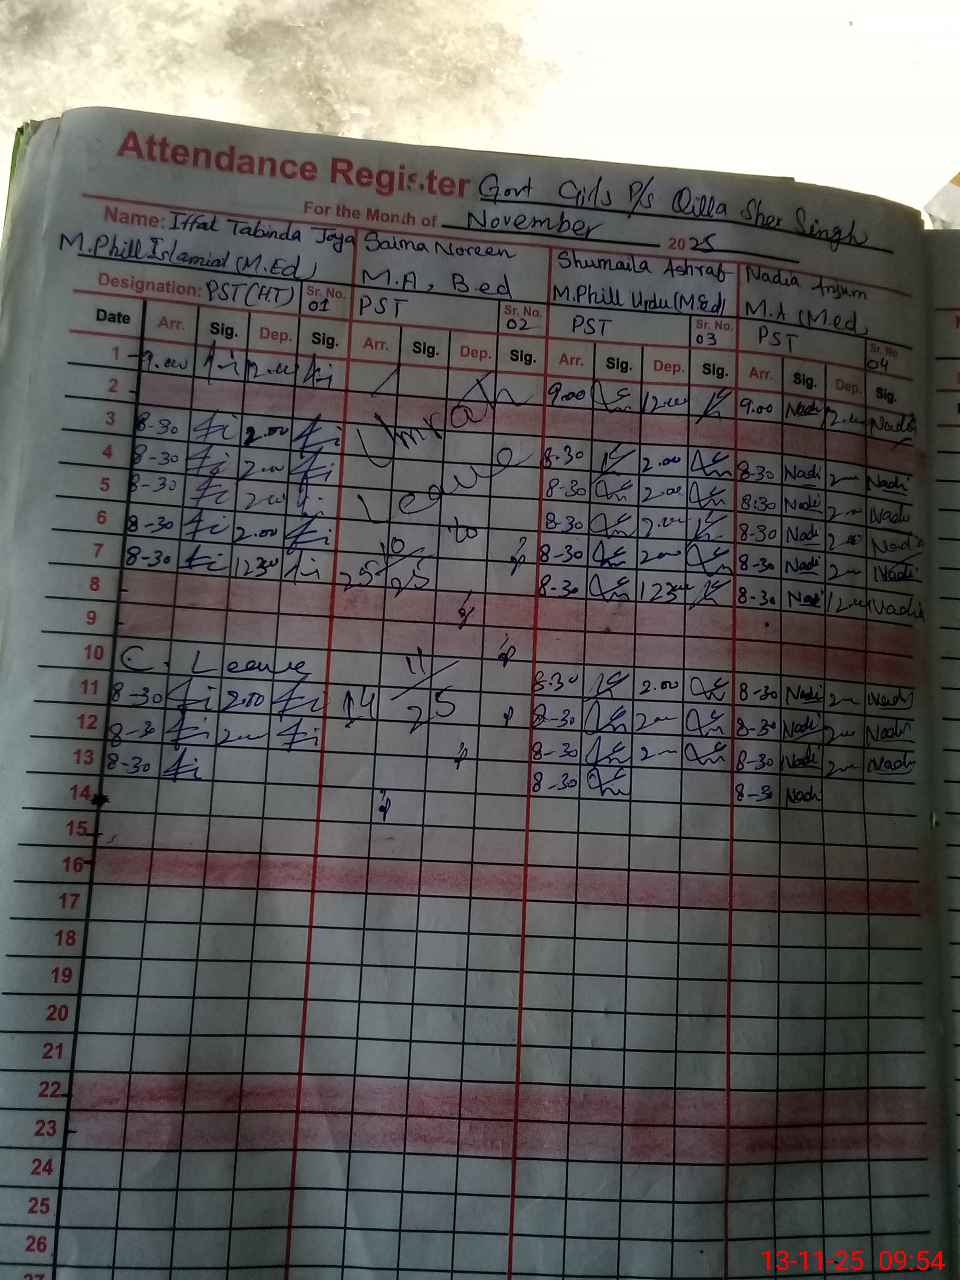 Attendance Register Govt Girls P/S Qilla Sher Singh
For the Month of November 2025
Name: Iffat Tabinda Joya Saima Noreen Shumaila Ashraf Nadia Anjum
M.Phill Islamiat (M.Ed) M.A, B.ed M.Phill Urdu (M.Ed) M.A (M.ed
Designation: PST (HT) Sr. No. 01 PST Sr. No. 02 PST Sr. No. 03 PST Sr. No. 04
Date Arr. Sig. Dep. Sig. Arr. Sig. Dep. Sig. Arr. Sig. Dep. Sig. Arr. Sig. Dep. Sig.
1 9.00 12.00 9.00 12.00 9.00 Nadi 12.00 Nadi
2 Umrah
3 8-30 2.00 8.30 2.00 8-30 Nadi 2.00 Nadi
4 8-30 2.00 Leave 8-30 2.00 8:30 Nadi 2.00 Nadi
5 8-30 2.00 8-30 2.00 8-30 Nadi 2.00 Nadi
6 8-30 2.00 to 8-30 2.00 8-30 Nadi 2.00 Nadi
7 8-30 1230 25/10/25 8-30 12300 8-30 Nadi 12.00 Nadia
8
9
10 C. Leave 8.30 2.00 8-30 Nadi 2.00 Nadi
11 8-30 2.00 14/11/25 8-30 2.00 8-30 Nadi 2.00 Nadi
12 8-30 2.00 8-30 2.00 8-30 Nadi 2.00 Nadi
13 8-30 8-30 8-30 Nadi
14
15
16
17
18
19
20
21
22
23
24
25
26
27
13-11-25 09:54